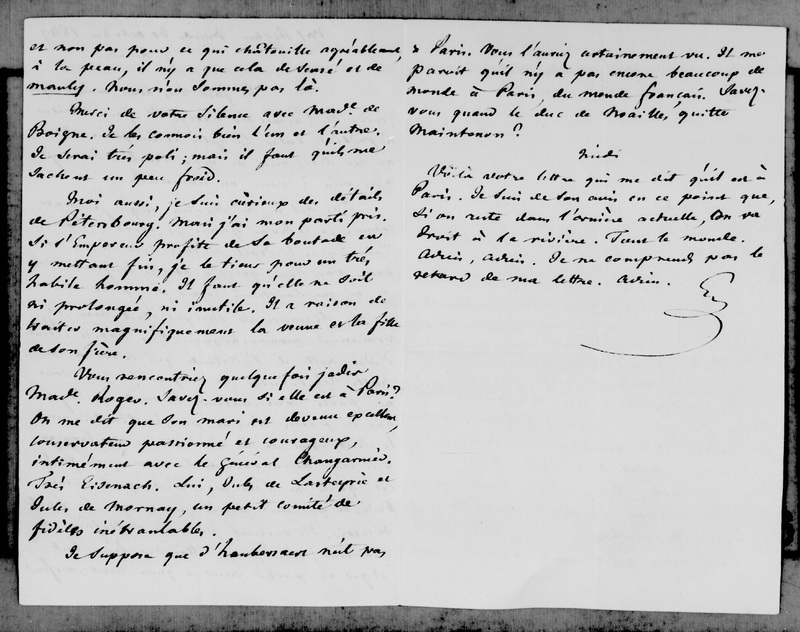 et non pas pour ce qui châtouille agréablement
à la peau, il n'y a que cela de sensé et de
manly. Nous n'en sommes pas là.
Merci de votre silence avec Made de
Boigne. Je les connois bien l'un et l'autre.
Je serai très poli ; mais il faut qu'ils me
sachent un peu froid.
Moi aussi, je suis curieux des détails
de Pétersbourg. Mais j'ai mon parti pris.
Si l'Empereur profite de sa boutade en
y mettant fin, je le tiens pour un très
habile homme. Il faut qu'elle ne soit
ni prolongée, ni inutile. Il a raison de
traiter magnifiquement la veuve et la fille
de son frère.
Vous rencontriez quelquefois jadis
Made Roger. Savez-vous si elle est à Paris ?
On me dit que son mari est devenu excellent,
conservateur passionné et courageux,
intimément avec le Général Changarnier.
Très Eisenach. Lui, Jules de Lasteyrie et
Jules de Mornay, un petit comité de
fidèles inébranlables.
Je suppose que d'haubersaert n'est pas
à Paris. Vous l'auriez certainement vu. Il me
paroit qu'il n'y a pas encore beaucoup de
monde à Paris, du monde français. Savez-
vous quand le duc de Noailles quitte
Maintenon ?
Midi
Voilà votre lettre qui me dit qu'il est à
Paris. Je suis de son avis en ce point que,
si on reste dans l'ornière actuelle, on va
droit à la rivière. Tout le monde.
Adieu, adieu. Je ne comprends pas le
retard de ma lettre. Adieu.